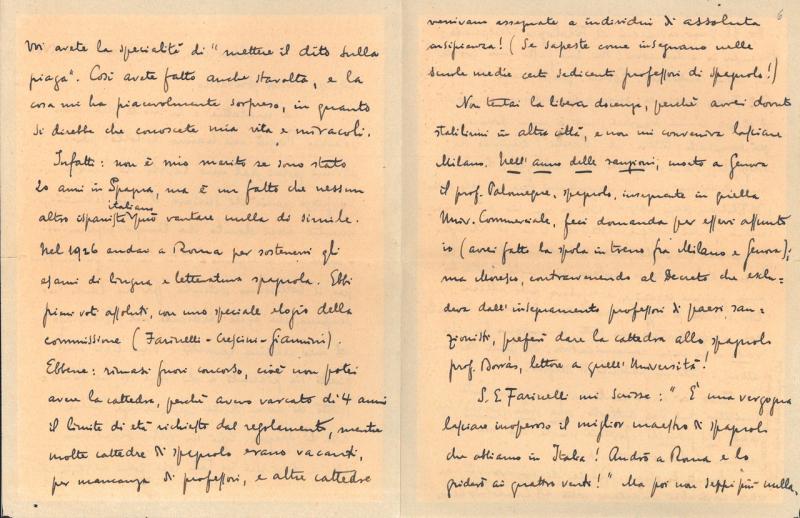 Voi avete la specialità di "mettere il dito sulla
piaga". Così avete fatto anche stavolta, e la
cosa mi ha piacevolmente sorpreso, in quanto
si direbbe che conoscete mia vita e miracoli.
Infatti: non è mio merito se sono stato
20 anni in Spagna, ma è un fatto che nessun
altro ispanista italiano può vantare nulla di simile.
Nel 1926 andai a Roma per sostenervi gli
esami di lingua e letteratura spagnola. Ebbi
pieni voti assoluti, con uno speciale elogio della
commissione (Farinelli - Crescini - Giannini).
Ebbene: rimasi fuori concorso, cioè non potei
avere la cattedra, perchè avevo varcato di 4 anni
il limite di età richiesto dal regolamento, mentre
molte cattedre di spagnolo erano vacanti,
per mancanza di professori, e altre cattedre
6
venivan assegnate a individui di assoluta
insipienza! (Se sapeste come insegnano nelle
scuole medie certi sedicenti professori di spagnolo!)
Non tentai la libera docenza, perchè avrei dovuto
stabilirmi in altra città, e non mi conveniva lasciare
Milano. Nell'anno delle sanzioni, morto a Genova
il prof. Palomeque, spagnolo, insegnante in quella
Univ. Commerciale, feci domanda per esservi assunto
io (avrei fatto la spola in treno fra Milano e Genova);
ma Moresco, contravvenendo al Decreto che esclu-
deva dall'insegnamento professori di paesi san-
zionisti, preferì dare la cattedra allo spagnolo
prof. Borrás, lettore a quell'Università!
S. E. Farinelli mi scrisse: "È una vergogna
lasciare inoperoso il miglior maestro di spagnolo
che abbiamo in Italia! Andrò a Roma e lo
griderò ai quattro venti!" Ma poi non seppi più nulla.